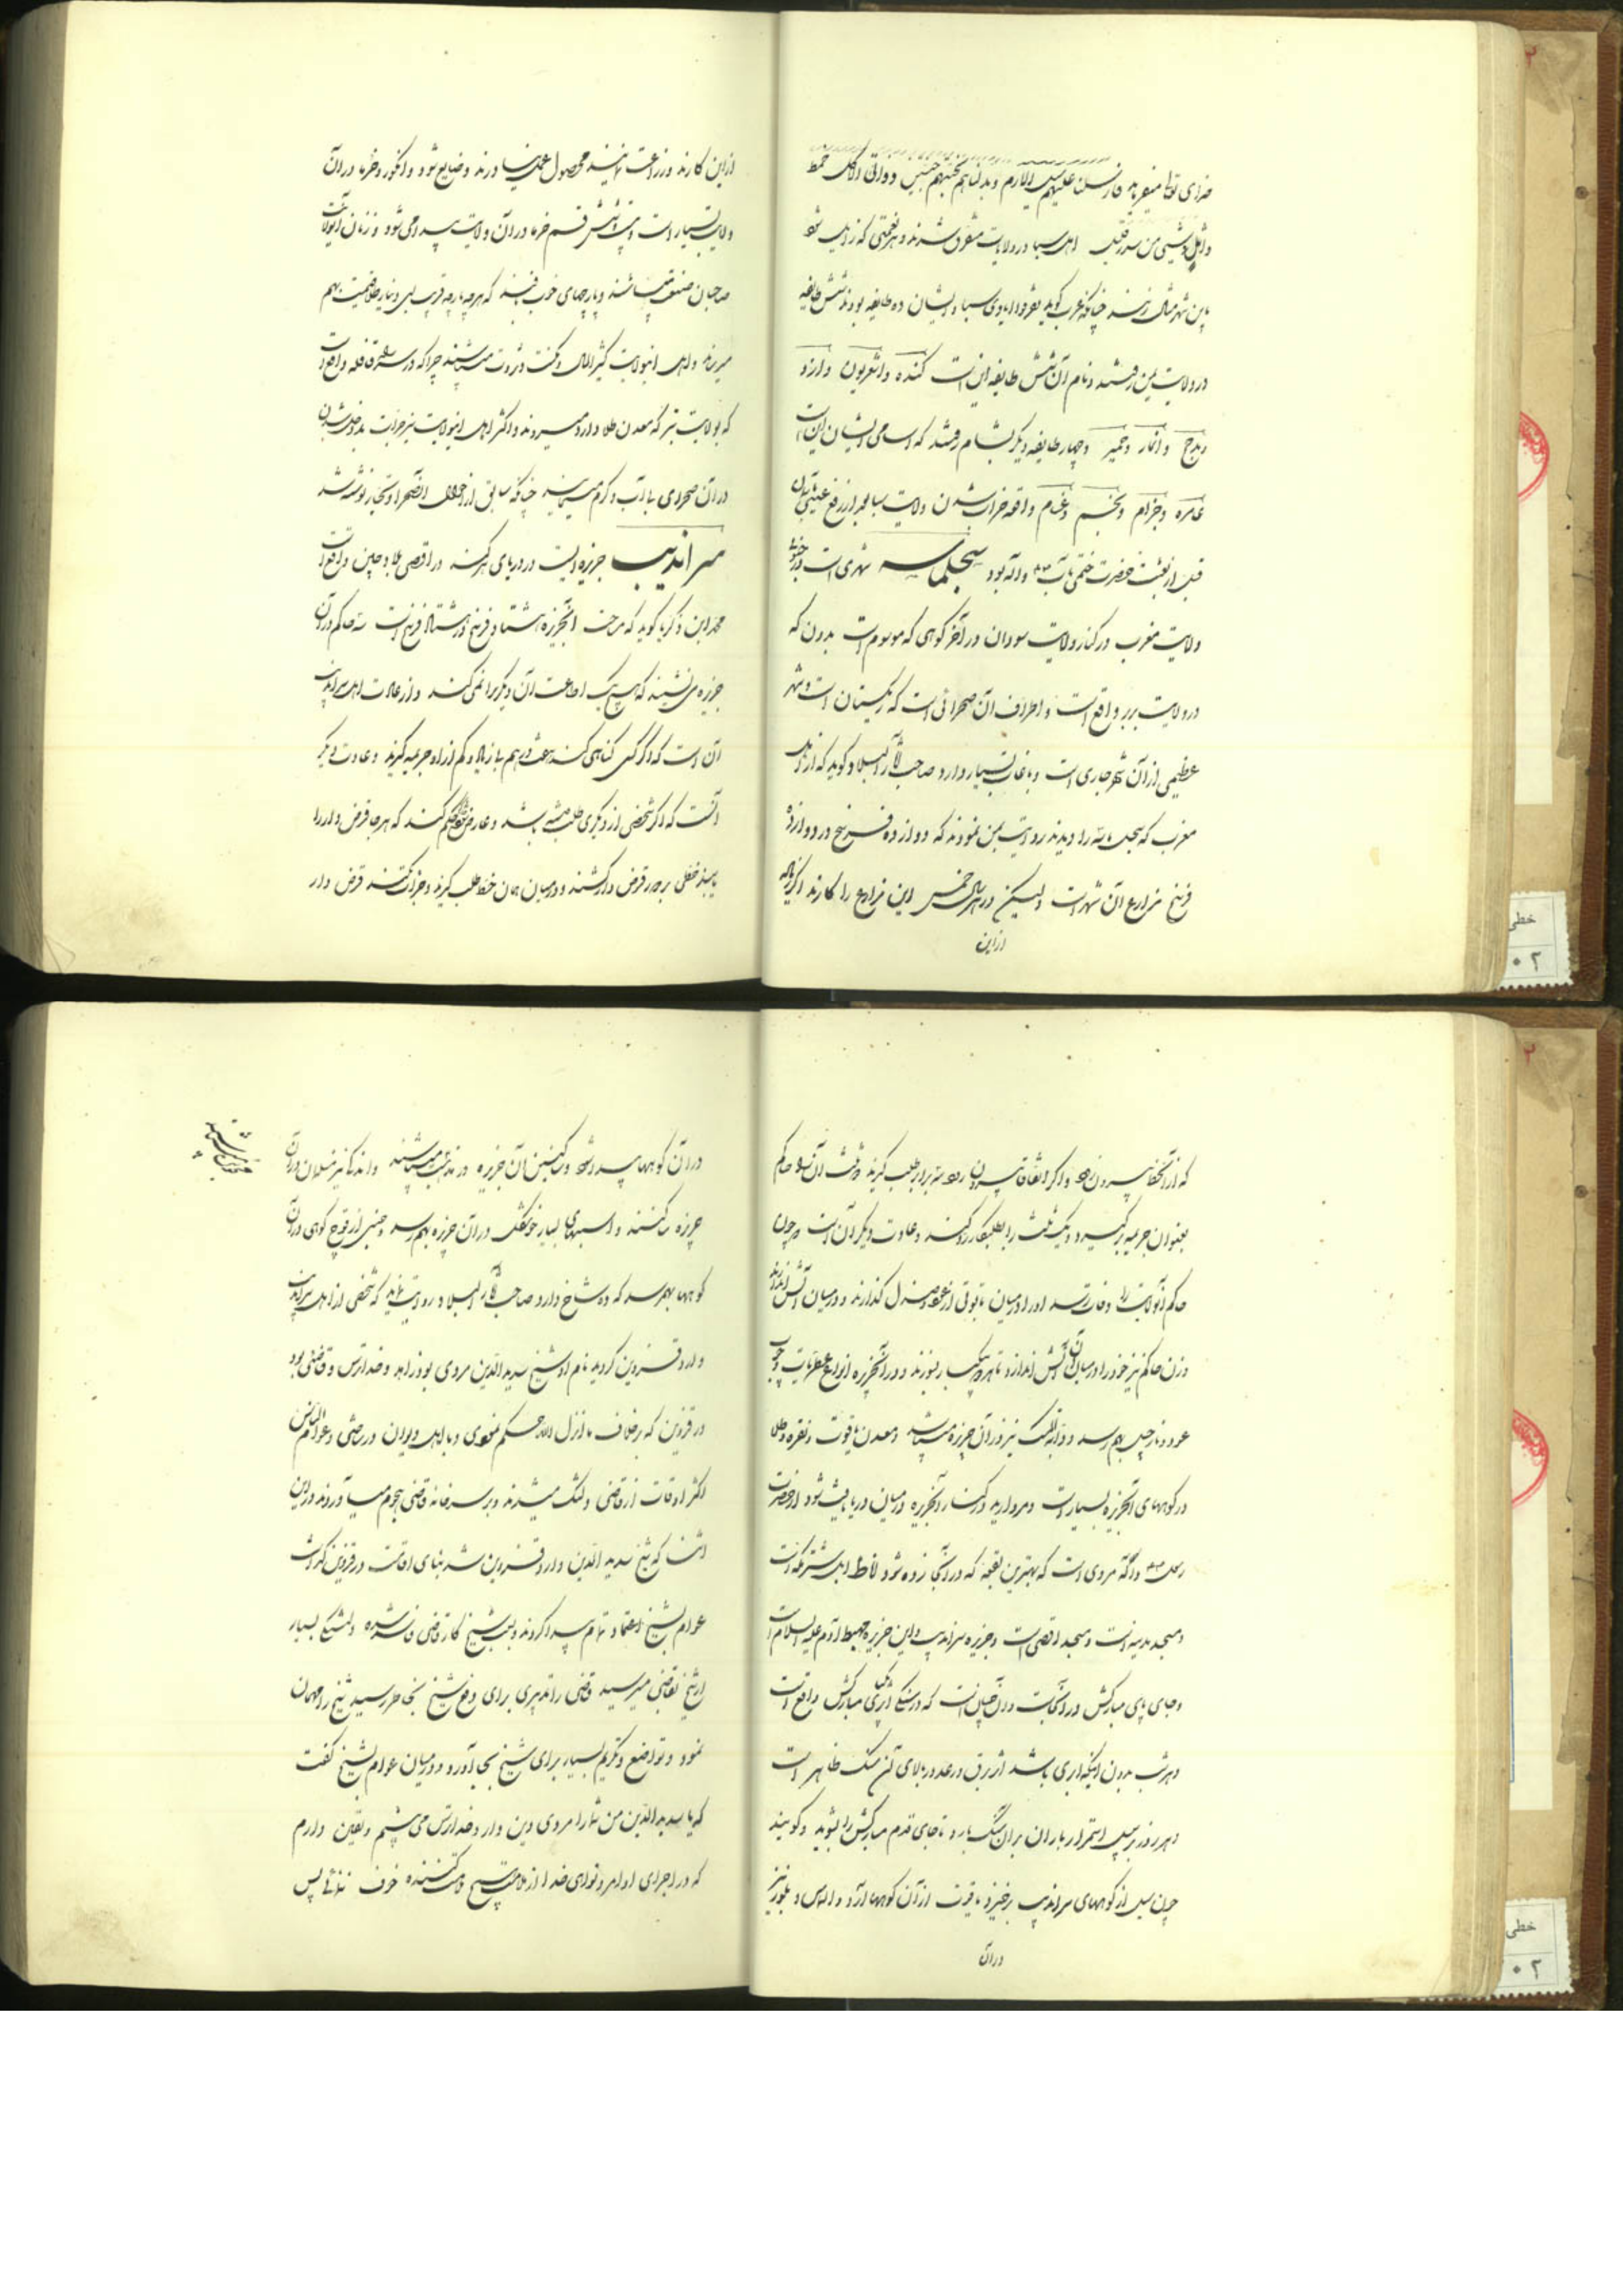 خدای تعالی میفرماید فارسلنا علیهم سیل العرم وبدلناهم بجنتیهم جنتین ذواتی اکل خمط
واثل وشیی من سدر قلیل اهل سبا در ولایات متفرق شدند و هر نعمتی که زایل شود
باین شهر مثال زنند چنانکه عرب گوید تفرقوا ایادی سبا و ایشان ده طایفه بودند شش طایفه
در ولایت یمن رفتند و نام آن شش طایفه این است کنده و اشعریون و ازد
و مذحج و انمار و حمیر و چهار طایفه دیگر بشام رفتند که اسامی ایشان این است
عامره و جزام و لخم و غسان و واقعه خراب شدن ولایت سبا بعد از رفع عیسی بآسمان
قبل از بعثت حضرت ختمی مآب و آله بود سجلماسه شهری است در جنوب
ولایت مغرب در کنار ولایت سودان در آخر کوهی که موسوم است بدرن که
در ولایت بربر واقع است و اطراف آن صحرائی است که ریگستان است و نهر
عظیمی از آن شهر جاری است و باغات بسیار دارد صاحب آثار البلاد گوید که از اهل
مغرب که سجلماسه را دیدند روایت بمن نمودند که دوازده فرسخ در دوازده
فرسخ مزارع آن شهر است ولیکن در هر سال خمس این مزارع را کارند اگر زیاده
از این
از این کارند و زراعت نمایند محصول عمل نیاورند و ضایع شود و انگور و خرما در آن
ولایت بسیار است و شش قسم خرما در آن ولایت پیدا می شود و زنان آنولایت
صاحبان صنعت میباشند و پارچهای خوب بافند که هر پارچه قریب بسی دینار طلا قیمت بهم
میرساند و اهل آنولایت کثیرالمال و مکنت و ثروت میباشند چرا که در سر راه قافله واقع است
که بولایت تبر که معدن طلا دارد میروند و اکثر اهل آنولایت نیز جرأت بداخل شدن
در آن صحرای بی آب و گرم مینمایند چنانکه سابق از احوال آنصحرا و تجار نوشته شد
سراندیب جزیره ایست در دریای هرکند در اقصی بلاد چین واقع است
محمد ابن زکریا گوید که مساحت آنجزیره هشتاد فرسخ در هشتاد فرسخ است سه حاکم در آن
جزیره می نشینند که هیچ یک اطاعت آن دیگری را نمی کنند و از عادات اهل سراندیب
آن است که اگر کسی گناهی کند هفت درهم یا زیاد و کم از او جریمه گیرند و عادت دیگر
آنست که اگر شخصی از دیگری طلب داشته باشد و عارض شود حاکم حکم کند که هر جا قرض دار را
یابند خطی بر دور قرض دار کشند و در میان همان خط طلب گیرند و جرأت نکند قرض دار
که از آنخط بیرون رود و اگر اتفاقا بیرون رود سه برابر طلب گیرند و ثلث آن را حاکم
بعنوان جریمه بر گیرد و یک ثلث را بطلبکار رد کند و عادت دیگر آن است که چون
حاکم آنولایت را وفات رسد او را در میان تابوتی از عود و صندل گذارند و در میان آتش اندازند
و زن حاکم نیز خود را در میان آن آتش اندازد تا هر دو بسوزند و در آنجزیره انواع عطریات و چوب
عود و نارجیل بهم رسد و دابة المسک نیز در آن جزیره میباشد و معدن یاقوت و نقره و طلا
در کوههای آنجزیره بسیار است و مروارید در کنار آنجزیره در میان دریا یافت شود از حضرت
رسول و آله مروی است که بهترین بقعه که در آنجا زده شود آباط ابل شتر مکه است
و مسجد مدینه است و مسجد اقصی است و جزیره سراندیب و این جزیره مهبط آدم علیه السلام است
و جای پای مبارکش در آنجاست و در آن جبل است که در سنگی اثر پای مبارکش واقع است
و هر شب بدون اینکه ابری باشد اثر برق و رعد در بالای آن سنگ ظاهر است
و هر روز بر سبیل استمرار باران بر آن سنگ بارد تا جای قدم مبارکش را بشوید و گویند
چون سیل از کوههای سراندیب برخیزد یاقوت از آن کوهها آرد و الماس و بلور نیز
در آن
در آن کوهها پیدا شود و ساکنین آن جزیره در مذهب میباشند و اندکی نیز مسلمان در آن
جزیره ساکنند و اسبهای بسیار خوشگل در آن جزیره بهم رسد و جنسی از قوچ کوهی در آن
کوهها بهم رسد که ده شاخ دارد صاحب آثار البلاد روایت نماید که شخصی از اهل سراندیب
وارد قزوین گردید نام او شیخ سدید الدین مردی بود زاهد و خدا ترس و قاضی بود
در قزوین که بر خلاف ما انزل الله حکم نمودی و با اهل دیوان در ساختی و عوام الناس
اکثر اوقات از قاضی دلتنگ میشدند و بر سر خانه قاضی هجوم میآوردند در این
اثنا که شیخ سدید الدین وارد قزوین شد بنای اقامت در قزوین گذاشت
عوام بشیخ اعتقاد تمام پیدا کردند و بسبب شیخ کار قاضی فاسد شده و دلتنگی بسیار
از شیخ بقاضی میرسید قاضی را تدبیری برای دفع شیخ بخاطر رسید شیخ را مهمان
نمود و تواضع و تکریم بسیار برای شیخ بجا آورد و در میان عوام بشیخ گفت
که یا سدید الدین من شما را مردی دین دار و خدا ترس می بینم و یقین دارم
که در اجرای اوامر و نواهی خدا از ملامت هیچ ملامت کننده خوف ندارى پس
خطی
۰۲
خطی
۰۲